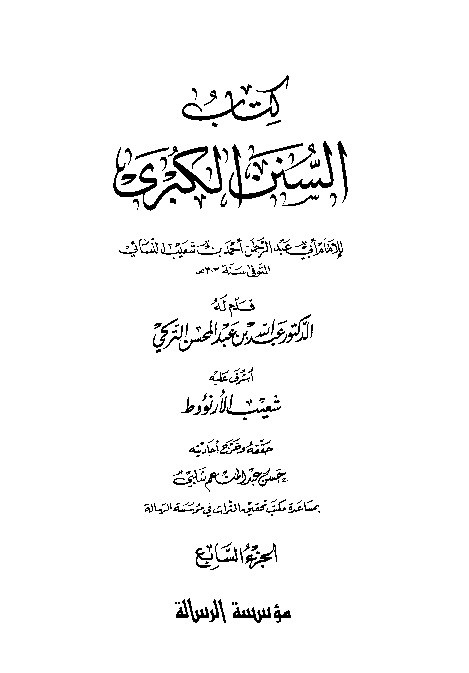 كِتَابُ
السُّنَنِ الكُبْرَى
للإمَام أبي عَبد الرَّحمٰن أحمَد بن شعَيب النسَائي
المتوفى سَنة ٣٠٣هـ
قدّم لَهُ
الدكتور عَبد الله بن عَبد المحسن التركي
أشرف عَليه
شعَيب الأرنؤوط
حَقّقهُ وَخَرّجَ أحَاديثه
حسَن عَبد المنعم شلبي
بمسَاعدة مكتب تحقيق التراث في مؤسسَة الرسَالة
الجزء السَّابع
مؤسسة الرسالة